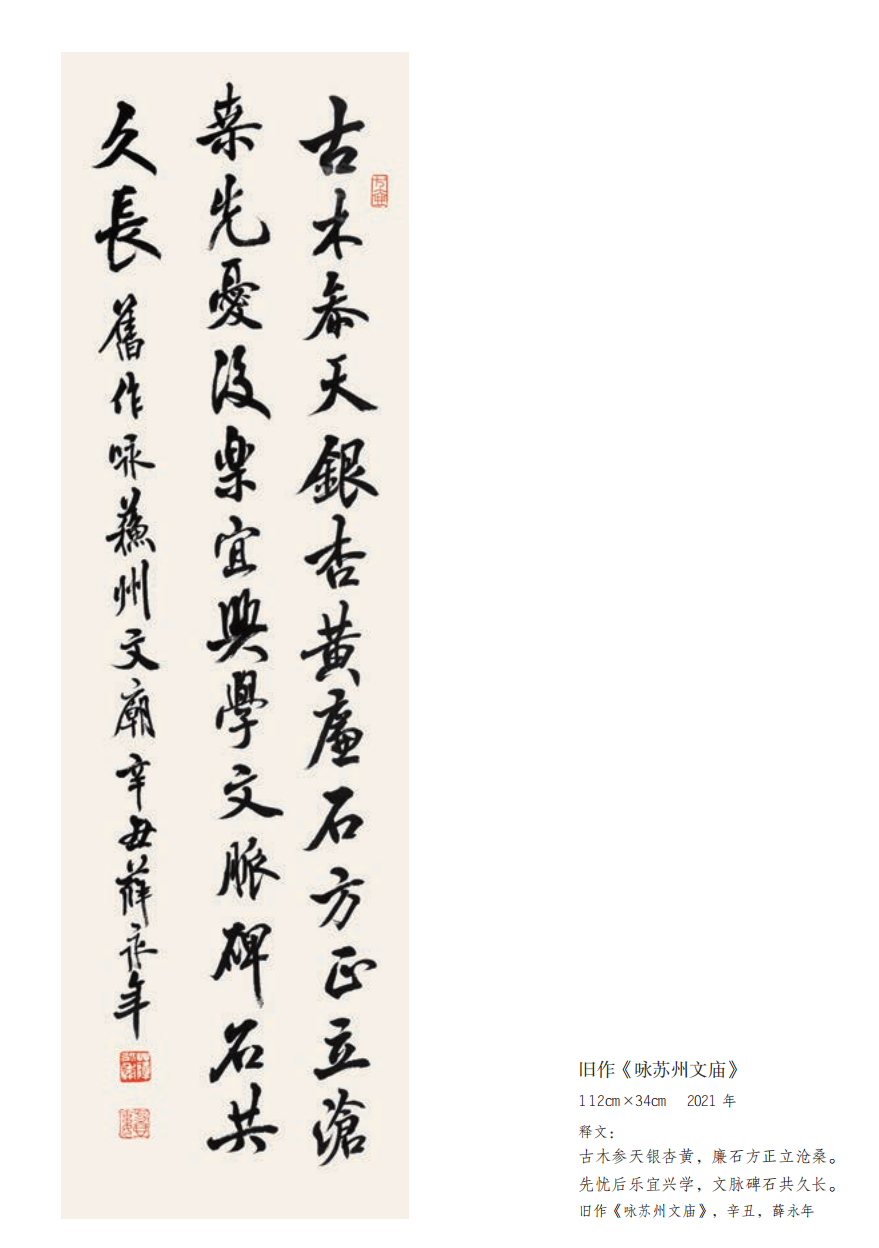 古木参天銀杏黄廉石方正立滄
桒先憂後樂宜興學文脈碑石共
久長
舊作咏蘇州文廟辛丑薛永年
旧作《咏苏州文庙》
112cm×34cm 2021 年
释文：
古木参天银杏黄，廉石方正立沧桑。
先忧后乐宜兴学，文脉碑石共久长。
旧作《咏苏州文庙》，辛丑，薛永年